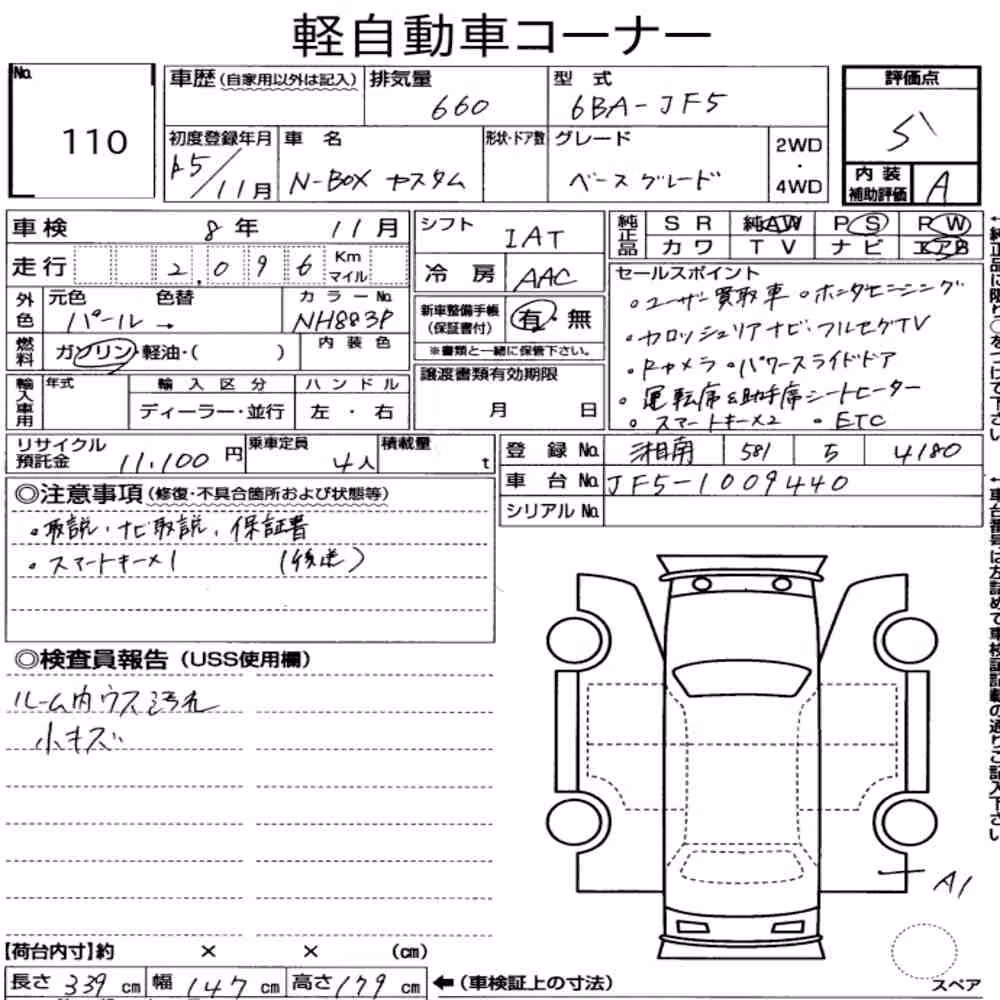 軽自動車コーナー
No. 110
車歴(自家用以外は記入) 排気量 660 型式 6BA-JF5
初度登録年月 R5/11月 車名 N-BOX カスタム 形状・ドア数 グレード ベースグレード 2WD・4WD
評価点 5
内装補助評価 A
車検 8年 11月
走行 2,096 Km マイル
外色 元色 パール→ 色替 カラーNo. NH883P
燃料 ガソリン・軽油・( ) 内装色
輸入車用 年式 輸入区分 ディーラー・並行 ハンドル 左・右
シフト IAT
冷房 AAC
新車整備手帳(保証書付) 有・無
※書類と一緒に保管下さい。
譲渡書類有効期限
月 日
純正品 SR 純正AW PS PW
カワ TV ナビ エアB
セールスポイント
・ユーザー買取車 ・ホンダセンシング
・カロッシェリアナビ・フルセグTV
・Rカメラ・パワースライドドア
・運転席&助手席シートヒーター
・スマートキー×2 ・ETC
リサイクル預託金 11,100円 乗車定員 4人 積載量 t
登録No. 湘南 581 5 4180
車台No. JF5-1009440
シリアルNo.
◎注意事項(修復・不具合箇所および状態等)
・取説、ナビ取説、保証書
・スマートキー×1 (後送)
◎検査員報告(USS使用欄)
ルーム内ウス汚れ
小キズ
A1
【荷台内寸】約 × × (cm)
長さ 339 cm 幅 147 cm 高さ 179 cm ←(車検証上の寸法)
スペア
←純正品に限り○をつけて下さい
←車台番号は左詰めで車検証記載の通りご記入下さい